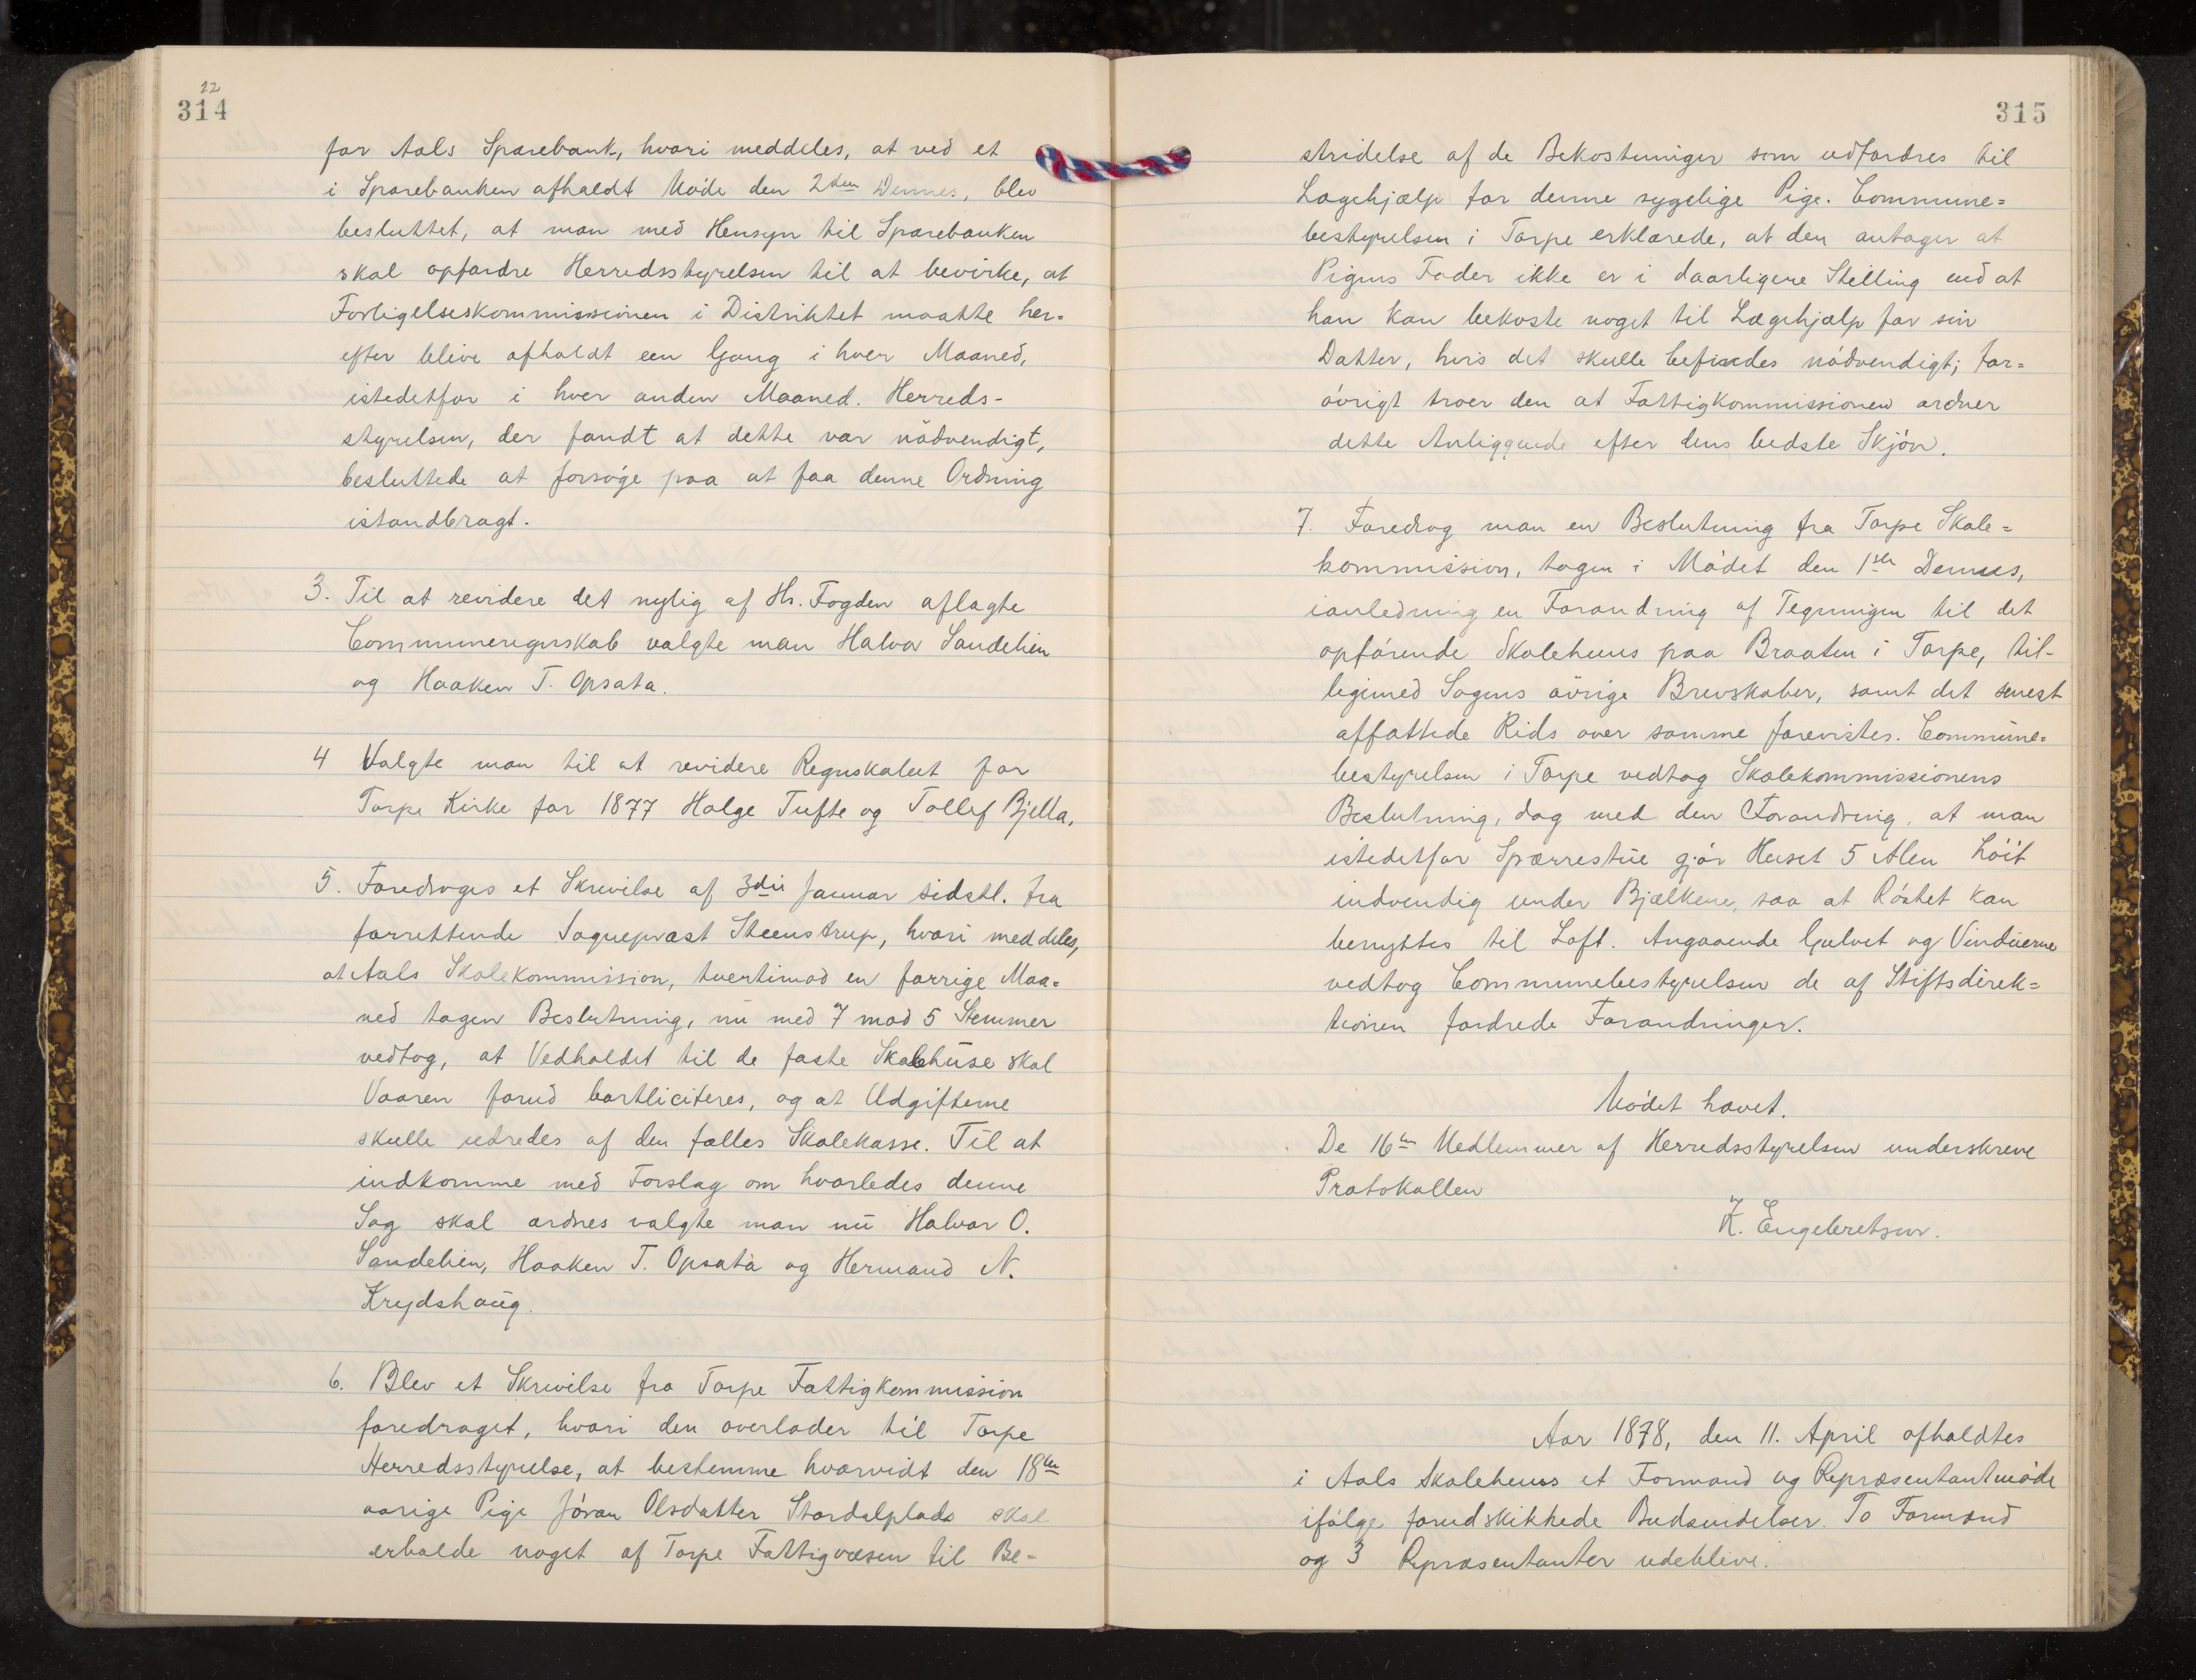 22
314
for Aals Sparebank, hvori meddeles, at ved et
i Sparebanken afholdt Møde den 2den Dennes, blev
besluttet, at man med Hensyn til Sparebanken
skal opfordre Herredsstyrelsen til at bevirke, at
Forligelseskommissionen i Distriktet maatte her=
efter blive afholdt een Gang i hver Maaned,
istedetfor i hver anden Maaned. Herreds-
styrelsen, der fandt at dette var nödvendigt,
besluttede at forsøge paa at faa denne Ordning
istandbragt.
3. Til at revidere det nylig af Hr. Fogden aflagte
Communeregnskab valgte man Halvor Sandehien
og Haaken T. Opsata.
4 Valgte man til at revidere Regnskabet for
Torpe Kirke for 1877 Holge Tufte og Tollef Bjella.
5. Foredroges et Skrivelse af 3die Januar sidstl. fra
forrettende Sogneprast Steenstrup, hvori meddeles,
at Aals Skolekommission, tvertimod en forrige Maa=
ned tagen Beslutning, nu med 7 mod 5 Stemmer
vedtog, at Vedholdet til de faste Skolehuse skal
Vaaren forud bortliciteres, og at Udgifterne
skulle udredes af den fælles Skolekasse. Til at
indkomme med Forslag om hvorledes denne
Sag skal ordnes valgte man nu Halvor O.
Sandehien, Haaken T. Opsata og Hermand N.
Krydshoug.
6. Blev et Skrivelse fra Torpe Fattigkommission
foredraget, hvori den overlader til Torpe
Herredsstyrelse, at bestemme hvorvidt den 18ten
aarige Pige Jöran Olsdatter Stordalplads skal
erholde noget af Torpe Fattigvæsen til Be=
315
stridelse af de Bekostninger som udfordres til
Lægehjælp for denne sygelige Pige. Commune=
bestyrelsen i Torpe erklærede, at den antager at
Pigens Fader ikke er i daarligere Stilling end at
han kan bekoste noget til Lægehjælp for sin
Datter, hvis det skulle befindes nødvendigt; for=
övrigt troer den at Fattigkommissionen ordner
dette Anliggende efter dens bedste Skjön.
7. Foredrog man en Beslutning fra Torpe Skole=
kommission, tagen i Mödet den 1ste Dennes,
ianledning en Forandring af Tegningen til det
opförende Skolehuus paa Braaten i Torpe, til-
ligimed Sagens øvrige Brevskaber, samt det senest
affattede Rids over samme forevistes. Commune=
bestyrelsen i Torpe vedtog Skolekommissionens
Beslutning, dog med den Forandring, at man
istedetfor Spærrestue gjör Huset 5 Alen höit
indvendig under Bjælkene, saa at Röstet kan
benyttes til Loft. Angaaende Gulvet og Vinduerne
vedtog Communebestyrelsen de af Stiftsdirek=
tionen fordrede Forandringer.
Mödet hævet.
De 16ten Medlemmer af Herredsstyrelsen underskreve
Protokollen
K. Engebretsen.
Aar 1878, den 11. April afholdtes
i Aals Skolehuus et Formand og Repræsentantmöde
ifölge forudskikkede Budsendelser. To Formænd
og 3 Repræsentanter udeblive.